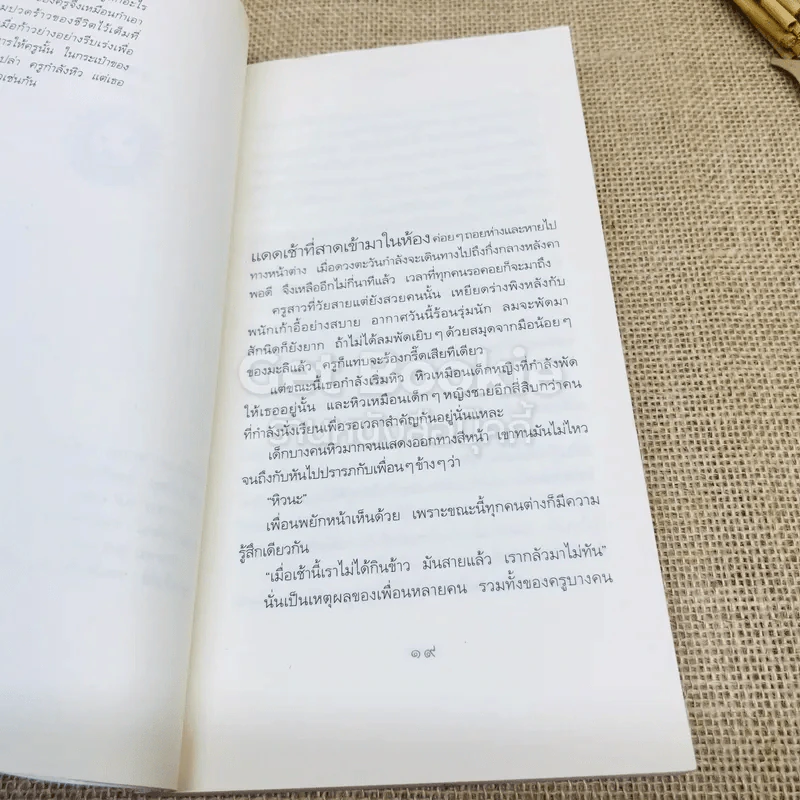 ของครูจึงเหมือนกำเอา
มปวดร้าวของชีวิตไว้เต็มที่
มื่อก้าวย่างอย่างรีบเร่งเพื่อ
ารให้ครูนั้น ในกระเป๋าของ
ปล่า ครูกำลังหิว แต่เธอ
วเช่นกัน
แดดเช้าที่สาดเข้ามาในห้อง ค่อยๆ ถอยห่างและหายไป
ทางหน้าต่าง เมื่อดวงตะวันกำลังจะเดินทางไปถึงกึ่งกลางหลังคา
พอดี จึงเหลืออีกไม่กี่นาทีแล้ว เวลาที่ทุกคนรอคอยก็จะมาถึง
ครูสาวที่วัยสายแต่ยังสวยคนนั้น เหยียดร่างพิงหลังกับ
พนักเก้าอี้อย่างสบาย อากาศวันนี้ร้อนรุ่มนัก ลมจะพัดมา
สักนิดก็ยังยาก ถ้าไม่ได้ลมพัดเยิบๆ ด้วยสมุดจากมือน้อยๆ
ของมะลิแล้ว ครูก็แทบจะร้องกรี๊ดเสียทีเดียว
แต่ขณะนี้เธอกำลังเริ่มหิว หิวเหมือนเด็กหญิงที่กำลังพัด
ให้เธออยู่นั้น และหิวเหมือนเด็กๆ หญิงชายอีกสี่สิบกว่าคน
ที่กำลังนั่งเรียนเพื่อรอเวลาสำคัญกันอยู่นั่นแหละ
เด็กบางคนหิวมากจนแสดงออกทางสีหน้า เขาทนมันไม่ไหว
จนถึงกับหันไปปรารภกับเพื่อนๆ ข้างๆ ว่า
“หิวนะ”
เพื่อนพยักหน้าเห็นด้วย เพราะขณะนี้ทุกคนต่างก็มีความ
รู้สึกเดียวกัน
“เมื่อเช้านี้เราไม่ได้กินข้าว มันสายแล้ว เรากลัวมาไม่ทัน”
นั่นเป็นเหตุผลของเพื่อนหลายคน รวมทั้งของครูบางคน
๑๙